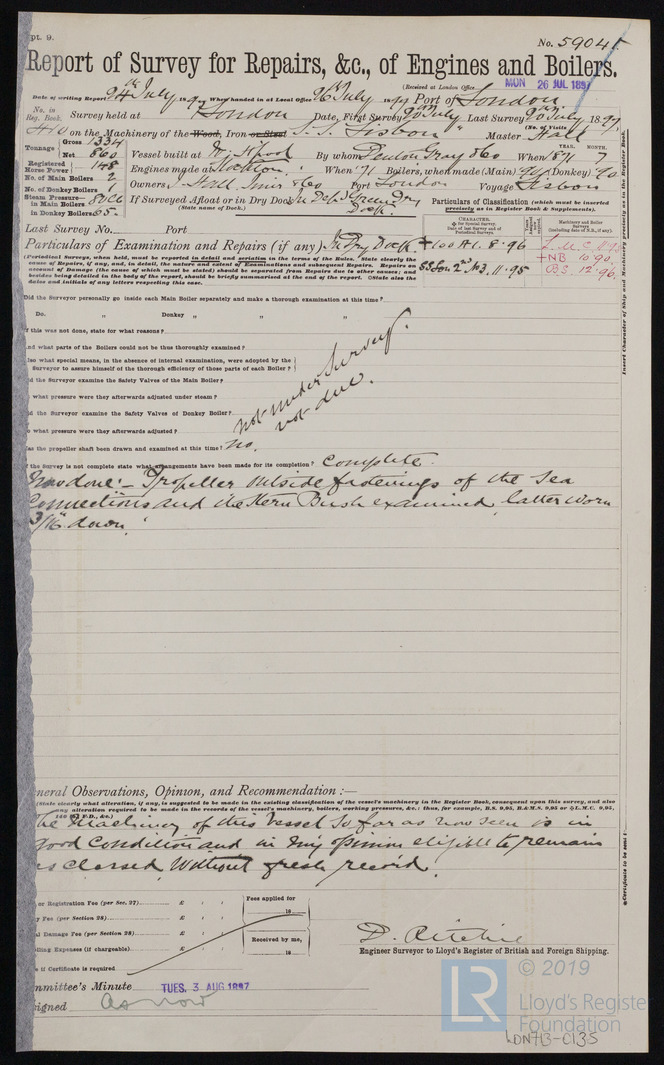 pt. 9.
No. 59041
Report of Survey for Repairs, &c., of Engines and Boilers.
(Received at London Office MON 26 JUL 1897
Date of writing Report 24th July 1897 When handed in at Local Office 26th July 1897 Port of London
No. in Reg. Book. Survey held at London Date, First Survey 20 July Last Survey 20 July 1897
(No. of Visits
on the Machinery of the Wood, Iron or Steel S.S. Lisbon Master Hall
Tonnage Gross 1334 Net 860 Vessel built at By whom Denton Gray &Co When 1871 YEAR. MONTH. 7
Registered Horse Power 148 Engines made at Stockton When 71 Boilers, when made (Main) 90 (Donkey) 90
No. of Main Boilers 2
No. of Donkey Boilers 1 Owners J. Hall, Junr &Co Port London Voyage Lisbon
Steam Pressure in Main Boilers 80 lb
in Donkey Boilers 65 If Surveyed Afloat or in Dry Dock Green Dry Dock
(State name of Dock.)
Particulars of Classification (which must be inserted precisely as in Register Book & Supplements).
Last Survey No. Port
CHARACTER.
Machinery and Boiler Surveys
Particulars of Examination and Repairs (if any) In Dry Dock
+100 A1. 8.96
SS Lon 2nd No3. 11.95
L.M.C.
+NB 10.90
BS. 12.96
(Periodical Surveys, when held, must be reported in detail and seriatim in the terms of the Rules. State clearly the
cause of Repairs, if any, and, in detail, the nature and extent of Examinations and subsequent Repairs. Repairs on
account of Damage (the cause of which must be stated) should be separated from Repairs due to other causes; and
besides being detailed in the body of the report, should be briefly summarised at the end of the report. State also the
dates and initials of any letters respecting this case.
Did the Surveyor personally go inside each Main Boiler separately and make a thorough examination at this time?
Do. „ Donkey „ „ „
f this was not done, state for what reasons?
nd what parts of the Boilers could not be thus thoroughly examined?
lso what special means, in the absence of internal examination, were adopted by the
Surveyor to assure himself of the thorough efficiency of those parts of each Boiler?
d the Surveyor examine the Safety Valves of the Main Boiler?
what pressure were they afterwards adjusted under steam?
d the Surveyor examine the Safety Valves of Donkey Boiler?
o what pressure were they afterwards adjusted?
not under survey.
not due.
as the propeller shaft been drawn and examined at this time? no.
f the Survey is not complete state what arrangements have been made for its completion? Complete.
Now done:- Propeller outside fastenings of the Sea
Connections and the Stern Bush examined, latter worn
3/16" down.
Insert Character of Ship and Machinery precisely as in the Register Book.
neral Observations, Opinion, and Recommendation :—
(State clearly what alteration, if any, is suggested to be made in the existing classification of the vessel's machinery in the Register Book, consequent upon this survey, and also
any alteration required to be made in the records of the vessel's machinery, boilers, working pressures, &c.: thus, for example, B.S. 9,95, B.&M.S. 9,95 or L.M.C. 9,95,
140 lb F.D., &c.)
The Machinery of this Vessel so far as now seen is in
good Condition and in my opinion eligible to remain
as Classed, Without fresh record.
Certificate to be sent
or Registration Fee (per Sec. 27) £ : :
y Fee (per Section 28) £ : :
al Damage Fee (per Section 28) £ : :
lling Expenses (if chargeable) £ : :
Fees applied for
18
Received by me,
18
e if Certificate is required
D. Ritchie
Engineer Surveyor to Lloyd's Register of British and Foreign Shipping.
mmittee's Minute TUES. 3 AUG 1897
signed as now
LR © 2019
Lloyd's Register
Foundation
LDN713-0135